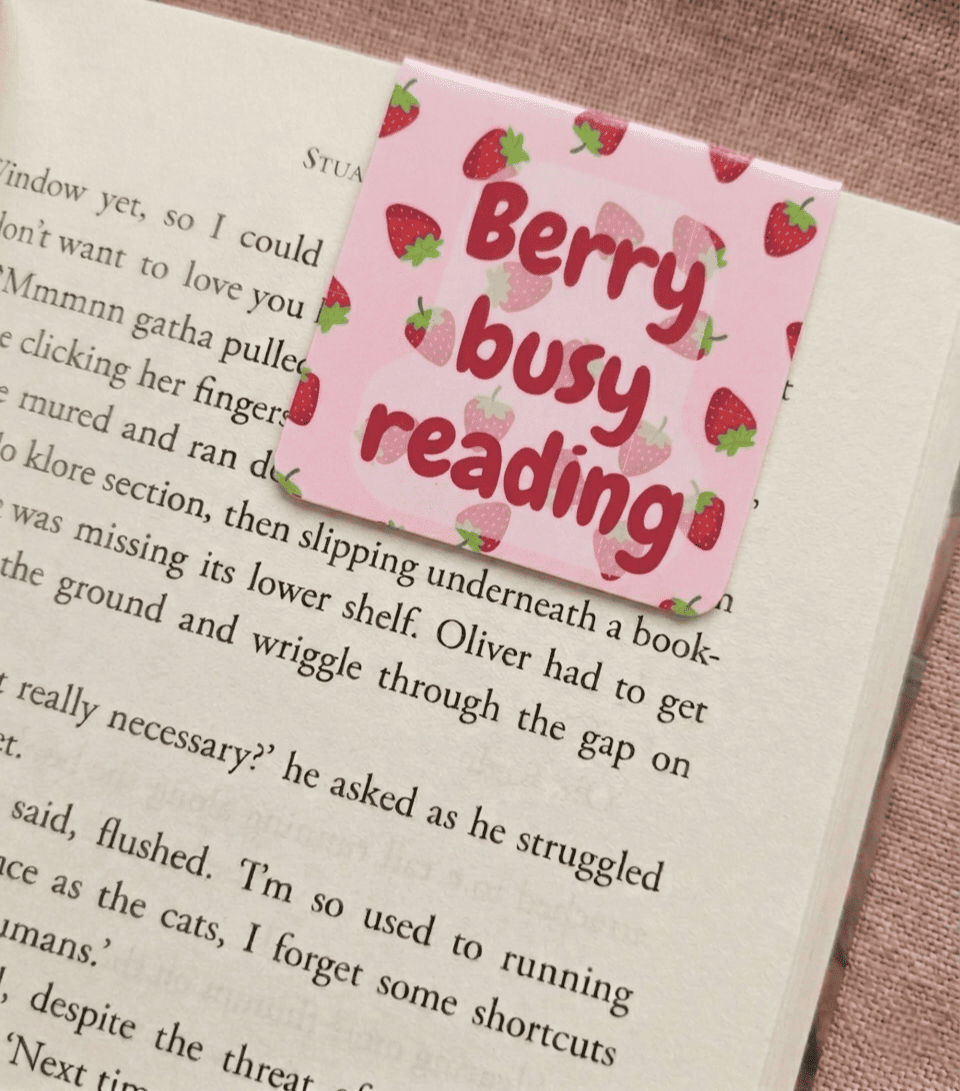 STUA
Window yet, so I could
don't want to love you
'Mmmnn gatha pulled
clicking her fingers
mured and ran
klore section, then slipping underneath a book-
was missing its lower shelf. Oliver had to get
the ground and wriggle through the gap on
really necessary?' he asked as he struggled
et.
said, flushed. 'I'm so used to running
nce as the cats, I forget some shortcuts
umans.'
despite the threat
'Next tim
Berry
busy
reading